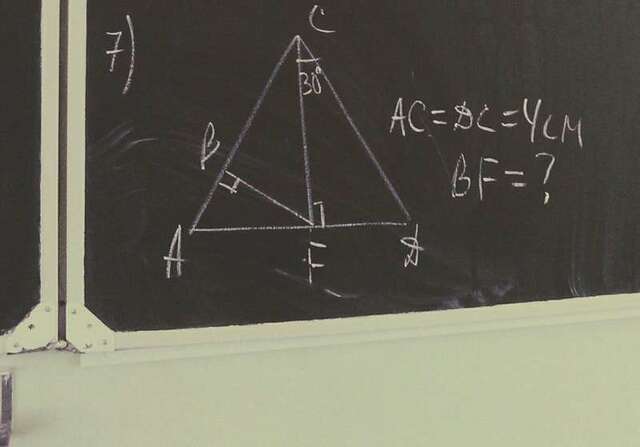 7)
C
30°
B
A
F
D
AC=DC=4см
BF=?